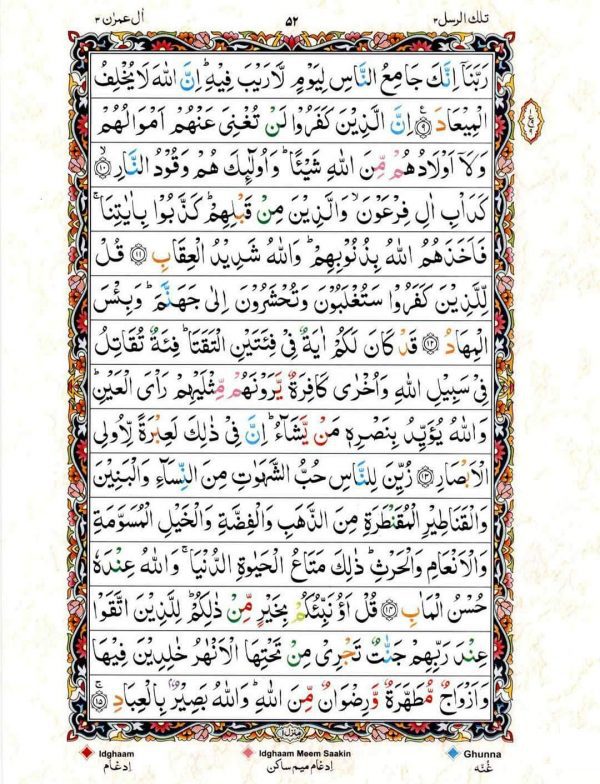 تلك الرسل ٣
٥٢
اٰل عمرٰن ٣
رَبَّنَاۤ اِنَّكَ جَامِعُ النَّاسِ لِيَوْمٍ لَّا رَيْبَ فِيْهِ ؕ اِنَّ اللّٰهَ لَا يُخْلِفُ
الْمِيْعَادَ ﴿۹﴾ اِنَّ الَّذِيْنَ كَفَرُوْا لَنْ تُغْنِىَ عَنْهُمْ اَمْوَالُهُمْ
وَلَاۤ اَوْلَادُهُمْ مِّنَ اللّٰهِ شَيْـًٔا ؕ وَاُولٰٓئِكَ هُمْ وَقُوْدُ النَّارِ ۙ﴿۱۰﴾
كَدَاْبِ اٰلِ فِرْعَوْنَ ۙ وَالَّذِيْنَ مِنْ قَبْلِهِمْ ؕ كَذَّبُوْا بِاٰيٰتِنَا ۚ
فَاَخَذَهُمُ اللّٰهُ بِذُنُوْبِهِمْ ؕ وَاللّٰهُ شَدِيْدُ الْعِقَابِ ﴿۱۱﴾ قُلْ
لِّلَّذِيْنَ كَفَرُوْا سَتُغْلَبُوْنَ وَتُحْشَرُوْنَ اِلٰى جَهَنَّمَ ؕ وَبِئْسَ
الْمِهَادُ ﴿۱۲﴾ قَدْ كَانَ لَكُمْ اٰيَةٌ فِىْ فِئَتَيْنِ الْتَقَتَا ؕ فِئَةٌ تُقَاتِلُ
فِىْ سَبِيْلِ اللّٰهِ وَاُخْرٰى كَافِرَةٌ يَّرَوْنَهُمْ مِّثْلَيْهِمْ رَاْىَ الْعَيْنِ ؕ
وَاللّٰهُ يُؤَيِّدُ بِنَصْرِهٖ مَنْ يَّشَآءُ ؕ اِنَّ فِىْ ذٰلِكَ لَعِبْرَةً لِّاُولِى
الْاَبْصَارِ ﴿۱۳﴾ زُيِّنَ لِلنَّاسِ حُبُّ الشَّهَوٰتِ مِنَ النِّسَآءِ وَالْبَنِيْنَ
وَالْقَنَاطِيْرِ الْمُقَنْطَرَةِ مِنَ الذَّهَبِ وَالْفِضَّةِ وَالْخَيْلِ الْمُسَوَّمَةِ
وَالْاَنْعَامِ وَالْحَرْثِ ؕ ذٰلِكَ مَتَاعُ الْحَيٰوةِ الدُّنْيَا ۚ وَاللّٰهُ عِنْدَهٗ
حُسْنُ الْمَاٰبِ ﴿۱۴﴾ قُلْ اَؤُنَبِّئُكُمْ بِخَيْرٍ مِّنْ ذٰلِكُمْ ؕ لِلَّذِيْنَ اتَّقَوْا
عِنْدَ رَبِّهِمْ جَنّٰتٌ تَجْرِىْ مِنْ تَحْتِهَا الْاَنْهٰرُ خٰلِدِيْنَ فِيْهَا
وَاَزْوَاجٌ مُّطَهَّرَةٌ وَّرِضْوَانٌ مِّنَ اللّٰهِ ؕ وَاللّٰهُ بَصِيْرٌۢ بِالْعِبَادِ ۚ﴿۱۵﴾
منزل ١
Idghaam
ادغام
Idghaam Meem Saakin
ادغام ميم ساكن
Ghunna
غُنّه